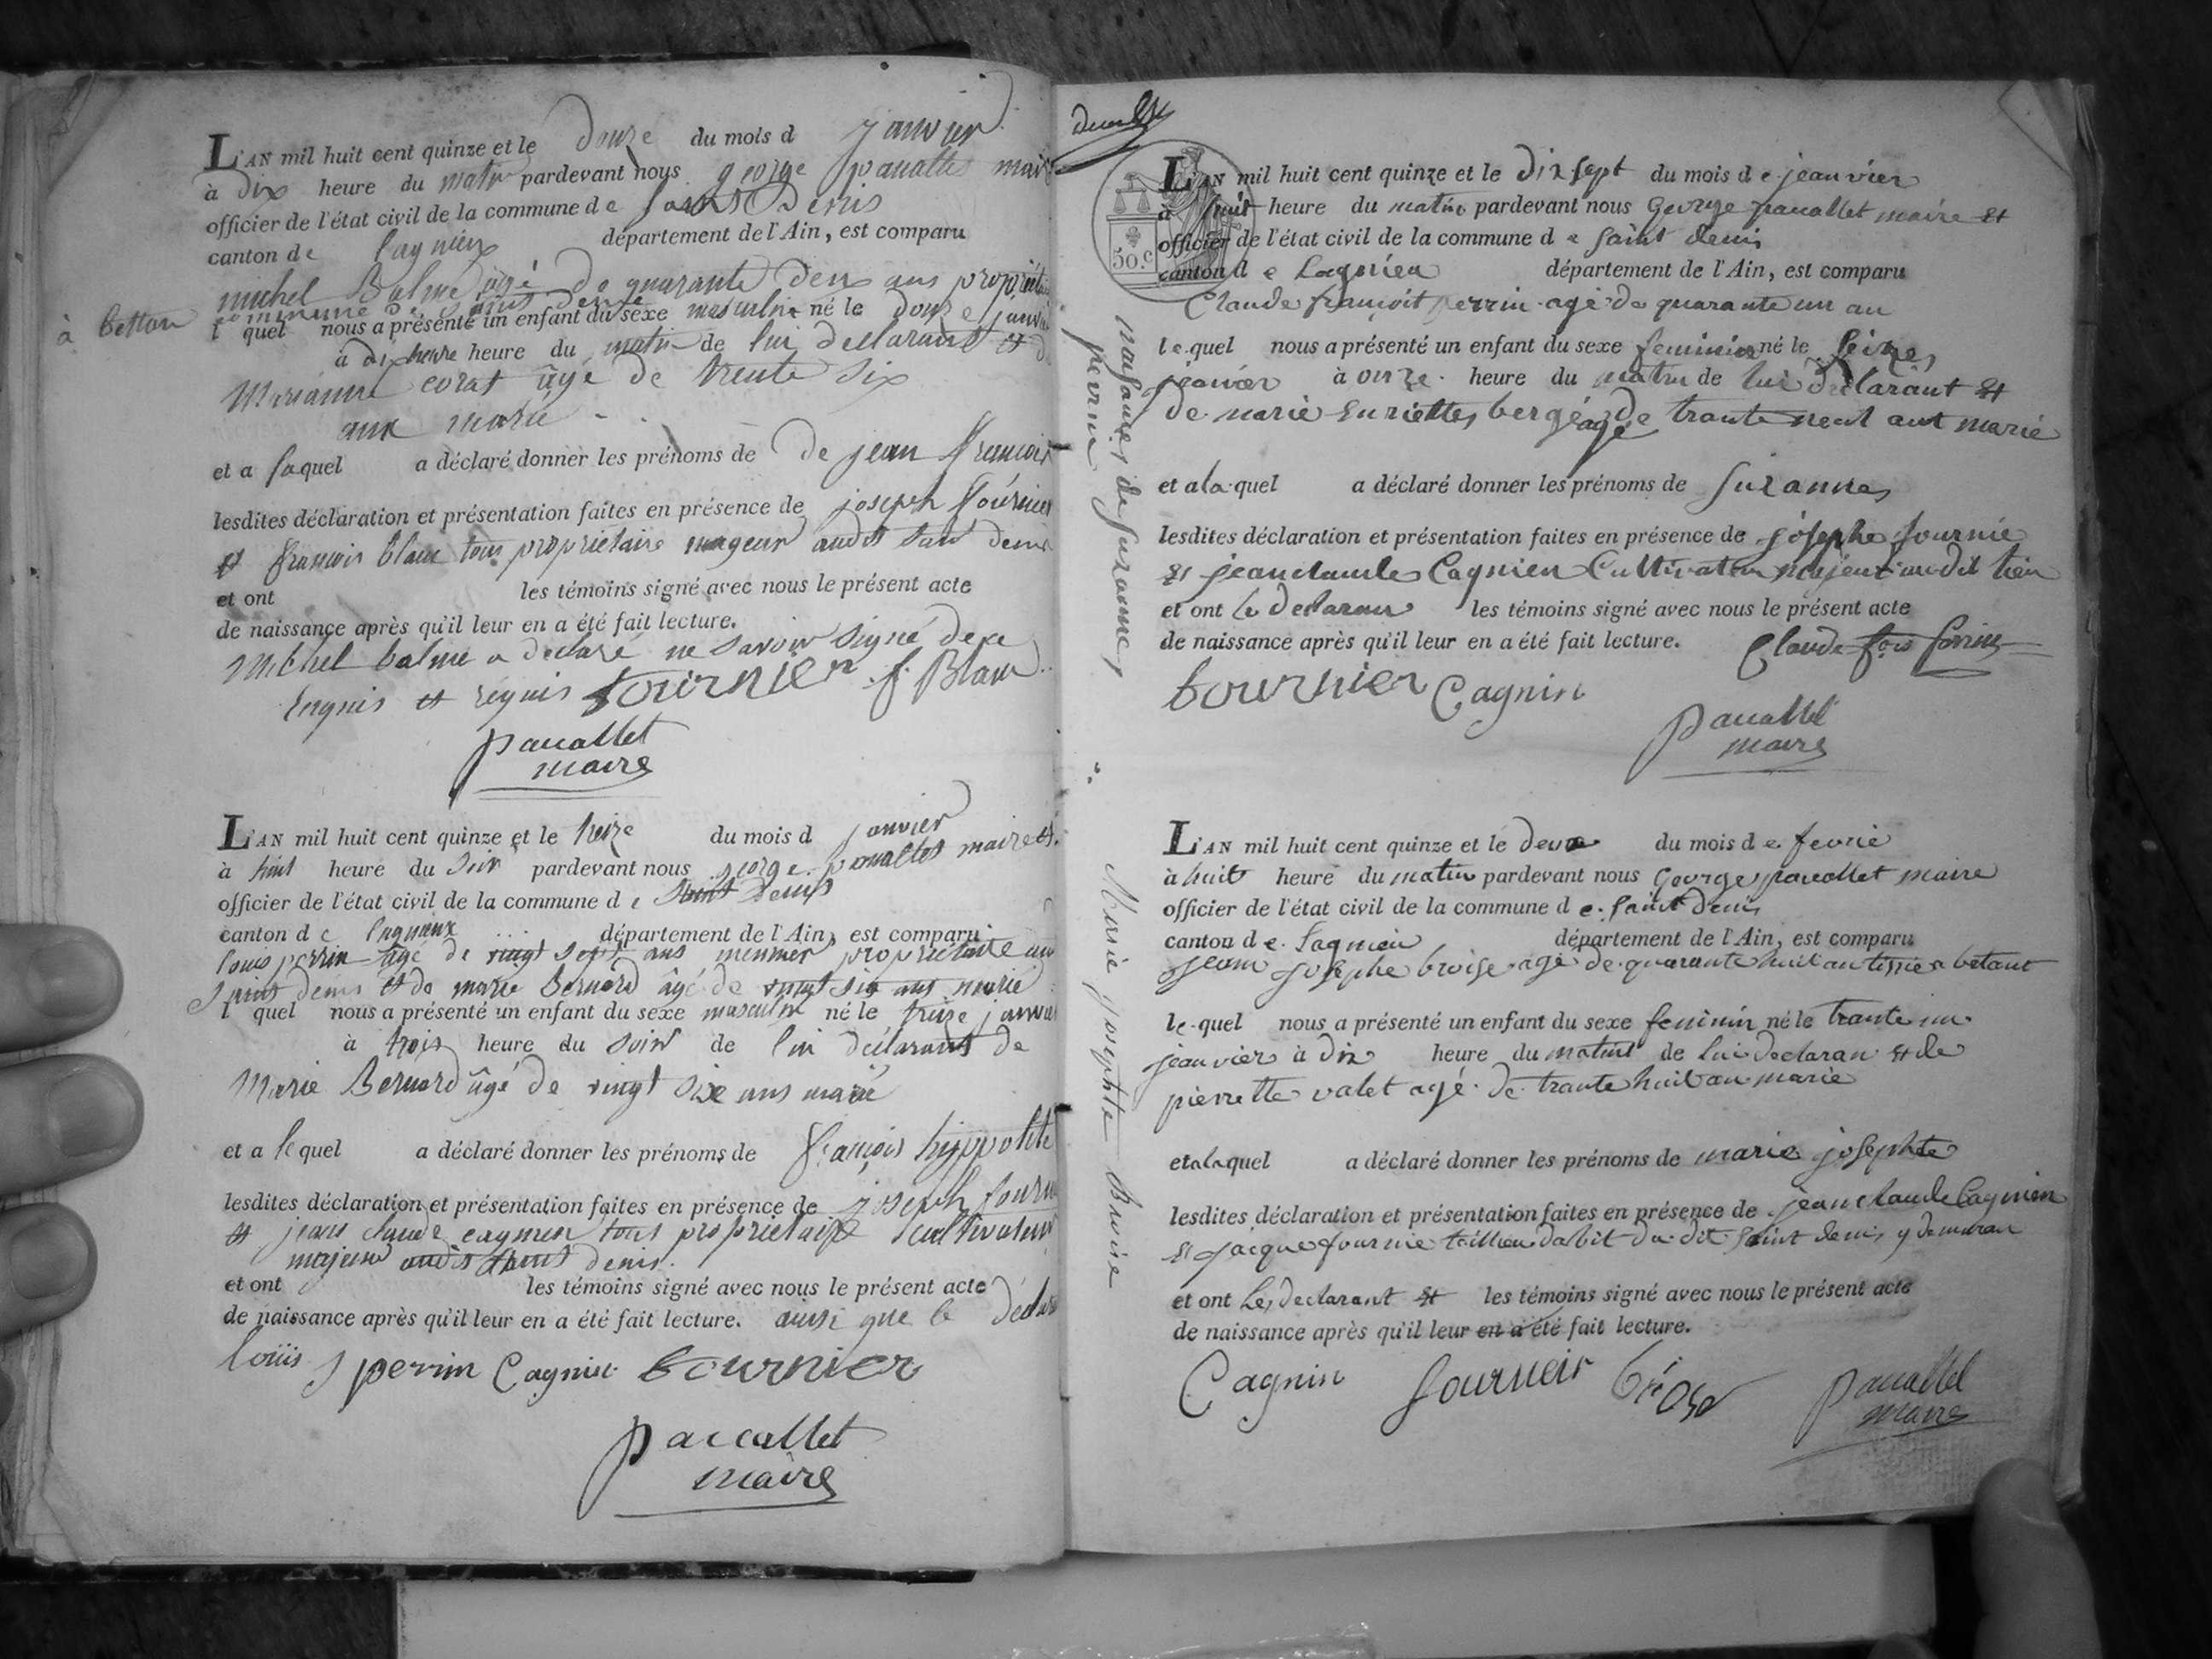 L'AN mil huit cent quinze et le douze du mois d janvier
à dix heure du matin pardevant nous george paucallet maire
officier de l'état civil de la commune de saint Denis
canton de lagnieux département de l'Ain, est comparu
michel Balme âgé de quarante deux ans propriétaire
à bettan commune de saint denis
l quel nous a présenté un enfant du sexe masculin né le douze janvier
à dix heure heure du matin de lui declarant et de
Marianne corat âgé de trente six
ans marié
et a laquel a déclaré donner les prénoms de de jean francois
lesdites déclaration et présentation faites en présence de joseph fournier
et francois blanc tous propriétaire mageur audit saint denis
et ont les témoins signé avec nous le présent acte
de naissance après qu'il leur en a été fait lecture.
Michel balme a declaré ne savoir signé de ce
enquis et requis fournier f. Blanc
paucallet
maire
L'AN mil huit cent quinze et le treize du mois d janvier
à huit heure du soir pardevant nous george paucallet maire et
officier de l'état civil de la commune de saint Denis
canton de lagnieux département de l'Ain, est comparu
louis perrin âgé de vingt sept ans meunier propriétaire au
saint denis et de marie Bernard âgé de vingt six ans marié
l quel nous a présenté un enfant du sexe masculin né le treize janvier
à trois heure du soir de lui déclarant de
Marie Bernard âgé de vingt six ans marié
et a le quel a déclaré donner les prénoms de francois hyppolite
lesdites déclaration et présentation faites en présence de joseph fournier
et jean claude cagnien tous propriétaire cultivateur
majeur audit saint denis.
et ont les témoins signé avec nous le présent acte
de naissance après qu'il leur en a été fait lecture. ainsi que le déclarant
louis perrin Cagnin tournier
paucallet
maire
30.c
naissance de suzanne perrin
L'AN mil huit cent quinze et le dix sept du mois de jeanvier
à huit heure du matin pardevant nous George paucallet maire et
officier de l'état civil de la commune de saint denis
canton de Lagnieu département de l'Ain, est comparu
Claude françoit perrin agé de quarante un an
le quel nous a présenté un enfant du sexe feminin né le seize
jeanvier à onze heure du matin de lui déclarant et
de marie enriette bergé agé de trante neuf ant marié
et a la quel a déclaré donner les prénoms de suzanne
lesdites déclaration et présentation faites en présence de josephe fournie
et jean claude Cagnien Cultivateur majeur au dit lieu
et ont le declarant les témoins signé avec nous le présent acte
de naissance après qu'il leur en a été fait lecture. Claude fois perrin
tournier Cagnin
paucallet
maire
Marie josephte Broise
L'AN mil huit cent quinze et le deux du mois de fevrié
à huit heure du matin pardevant nous George paucallet maire
officier de l'état civil de la commune de saint denis
canton de Lagnieu département de l'Ain, est comparu
jean josephe broise agé de quarante huit an tissier a betant
le quel nous a présenté un enfant du sexe feminin né le trante un
jeanvier à dix heure du matint de lui declaran et de
pierrette valet agé de trante huit an marié
et a la quel a déclaré donner les prénoms de marie josephte
lesdites déclaration et présentation faites en présence de jean claude Cagnien
et jacque fournie taillieu dabit du dit saint denis y demuran
et ont les declarant et les témoins signé avec nous le présent acte
de naissance après qu'il leur en a été fait lecture.
Cagnin fournier briose
paucallet
maire